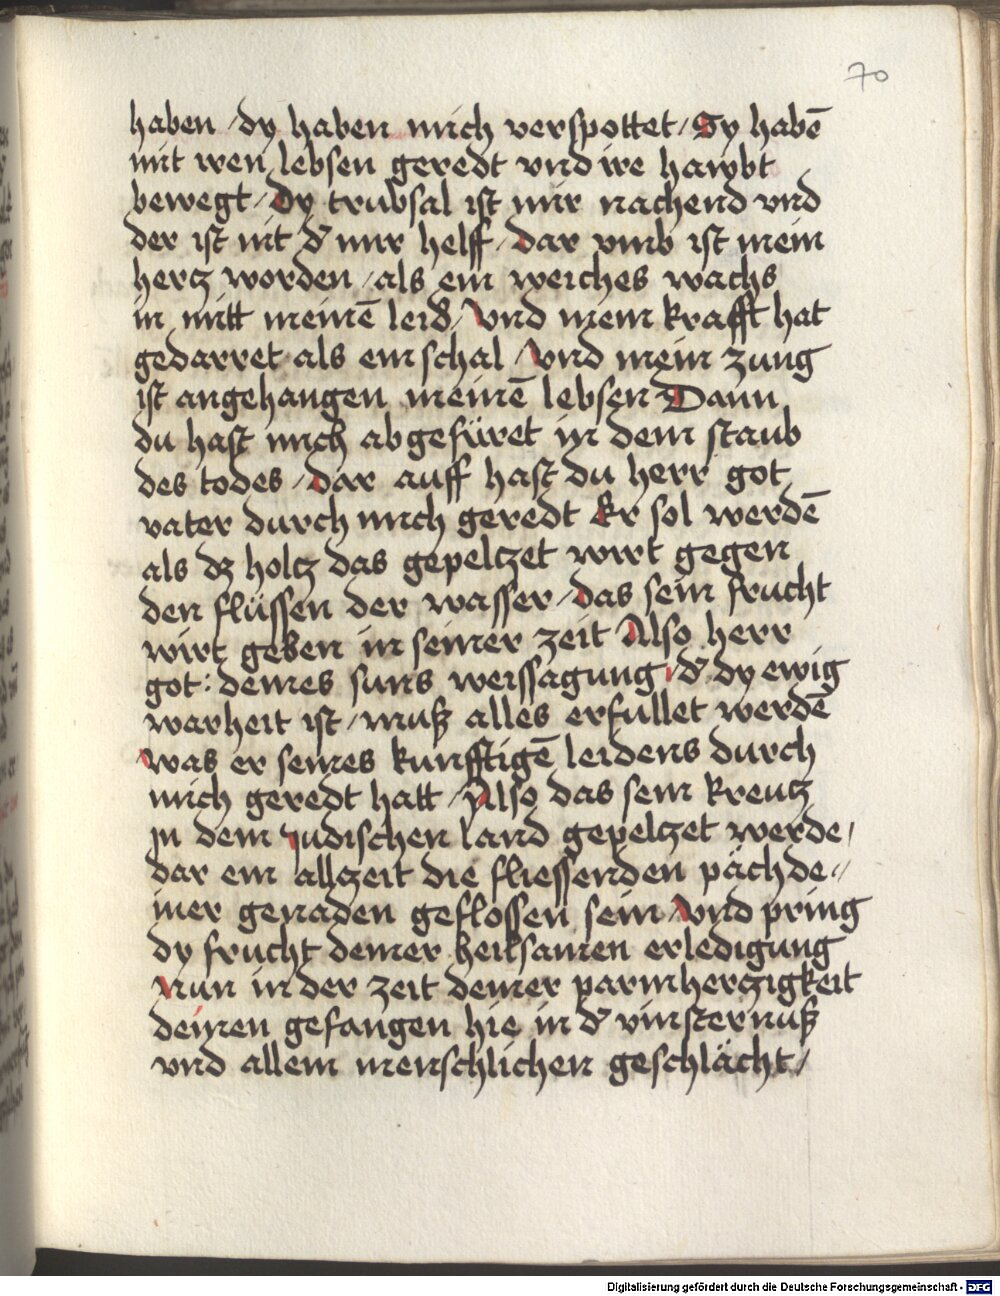 70
haben / dy haben mich verspottet / Sy habē
mit iren lebsen geredt vnd ire hawbt
bewegt / Dy trubsal ist mir nachend vnd
der ist nit d' mir helff / dar vmb ist mein
hertz worden / als ein weiches wachs
in mitt meinē leib / Vnd mein krafft hat
gedarret als ein schal / Vnd mein zung
ist angehangen meinē lebsen Dann
du hast mich abgefüret in dem staub
des todes / dar auff hast du herr got
vater durch mich geredt Er sol werdē
als dz holtz das gepeltzet wirt gegen
den flüssen der wasser / das sein frucht
wirt geben in seiner zeit Also herr
got : deines suns weissagung / d' dy ewig
warheit ist / muß alles erfullet werdē
was er seines kunfftigē leidens durch
mich geredt hatt / Also das sein kreutz
in dem judischen land gepeltzet werde /
dar ein allczeit die fliessenden pächde //
iner genaden geflossen sein / Vnd pring
dy frucht deiner heilsamen erledigung
Nun in der zeit deiner parmherczigkeit
deinen gefangen hie in d' vinsternuß
vnd allem menschlichen geschlächt /
Digitalisierung gefördert durch die Deutsche Forschungsgemeinschaft - DFG